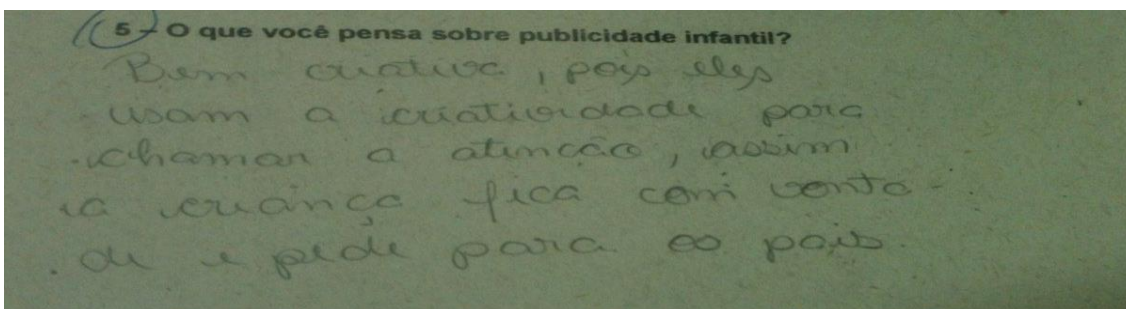 5 - O que você pensa sobre publicidade infantil?
Bem criativa, pois eles
usam a criatividade para
chamar a atenção, assim
a criança fica com vonta-
de e pede para os pais.